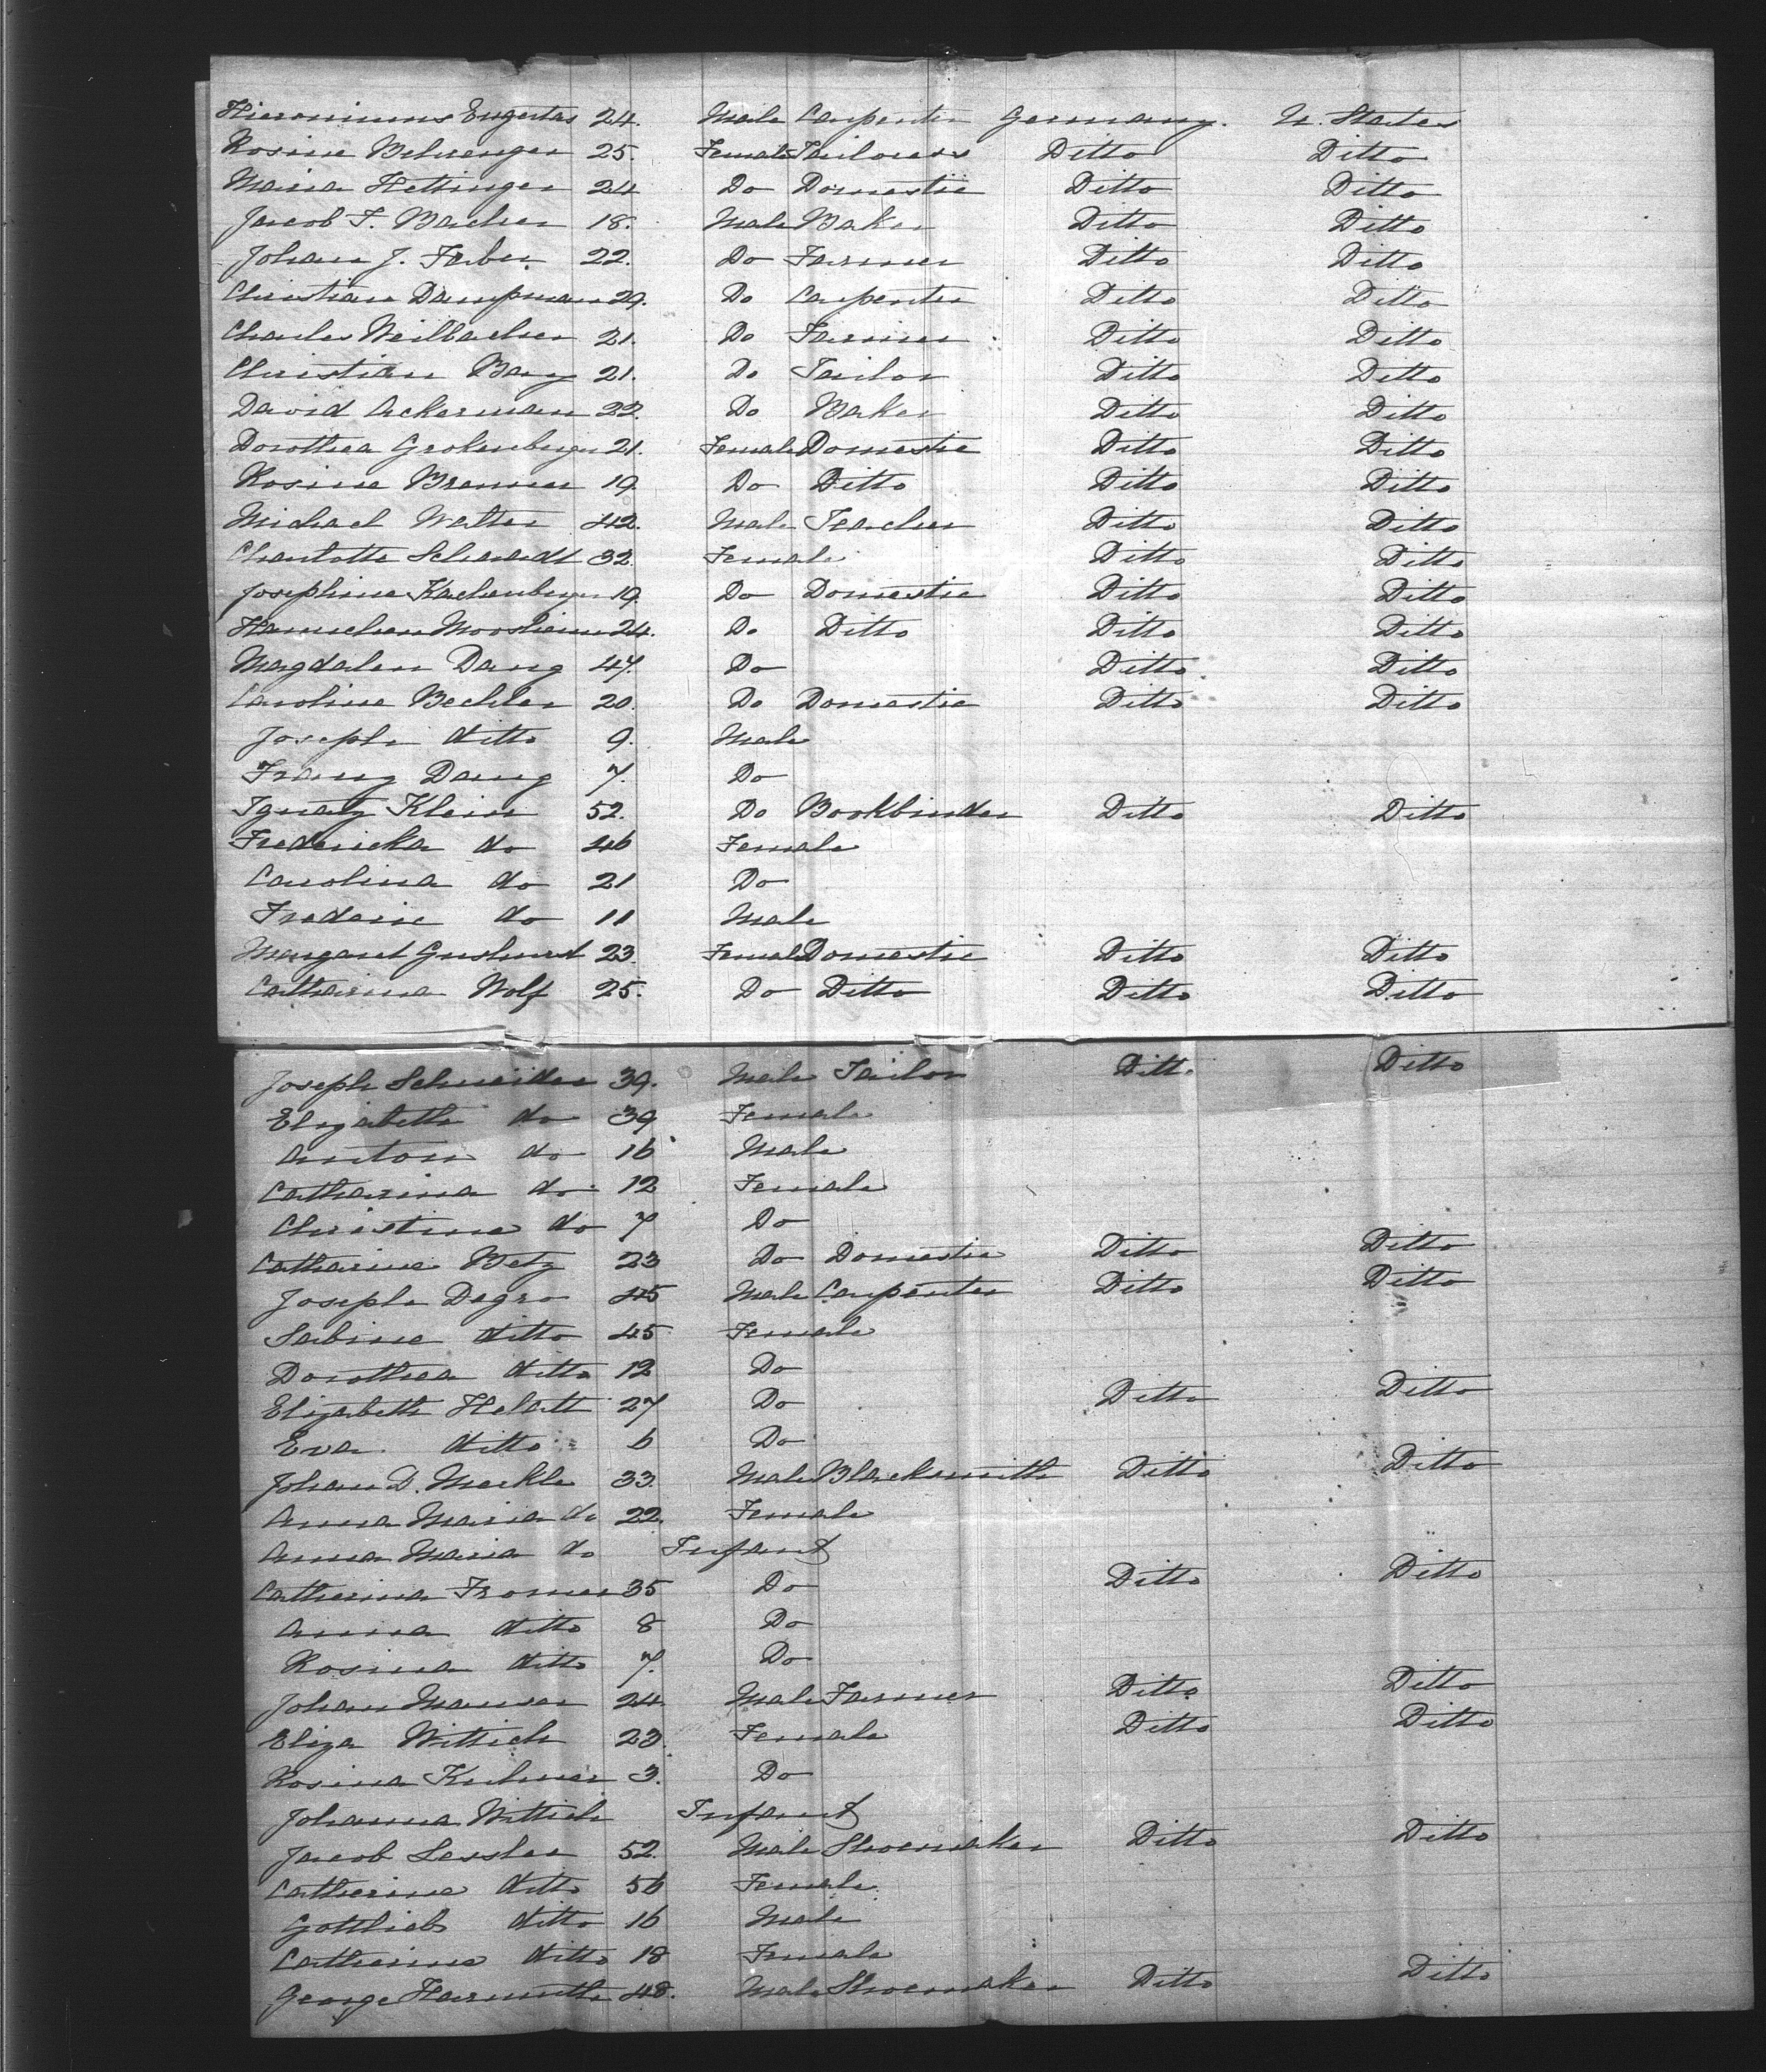 Hieronimus Engertas 24. Male Carpenter Germany. U. States
Rosine Behrenger 25. Female Tailoress Ditto Ditto
Maria Hettinger 24 Do Domestic Ditto Ditto
Jacob F. Bacher 18. Male Baker Ditto Ditto
Johan J. Farber 22. Do Farmer Ditto Ditto
Christian Dampman 29. Do Carpenter Ditto Ditto
Charles Weilbacher 21. Do Farmer Ditto Ditto
Christian Bang 21. Do Tailor Ditto Ditto
David Ackerman 22. Do Baker Ditto Ditto
Dorothea Grokenberger 21. Female Domestic Ditto Ditto
Rosine Brenner 19. Do Ditto Ditto Ditto
Michael Walter 42. Male Teacher Ditto Ditto
Charlotte Schwandt 32. Female Ditto Ditto
Josephine Kachenberger 19. Do Domestic Ditto Ditto
24. Do Ditto Ditto Ditto
Magdalen Dang 47. Do Ditto Ditto
Caroline Bechler 20. Do Domestic Ditto Ditto
Joseph ditto 9. Male
Franz Dang 7. Do
Ignatz Klein 52. Do Bookbinder Ditto Ditto
Fredericka do 46 Female
Carolina do 21 Do
Frederic do 11 Male
Margaret 23. Female Domestic Ditto Ditto
Catharina Wolf 25. Do Ditto Ditto Ditto
Joseph Schneider 39. Male Tailor Ditto Ditto
Elizabeth do 39 Female
Anton do 16 Male
Catharina do 12 Female
Christine do 7 Do
Catharine Betz 23 Do Domestic Ditto Ditto
Joseph Degro 45 Male Carpenter Ditto Ditto
Sabine ditto 45 Female
Dorothea ditto 12 Do
Elizabeth Helatt 27 Do Ditto Ditto
Eva ditto 6 Do
Johan D. Merkle 33. Male Blacksmith Ditto Ditto
Anna Maria do 22. Female
Anna Maria do Infant
Catherina Fromer 35 Do Ditto Ditto
Anna ditto 8 Do
Rosina ditto 7. Do
Johan Manser 24 Male Farmer Ditto Ditto
Eliza Wittich 23. Female Ditto Ditto
Rosina Kuhner 3. Do
Johanna Wittich Infant
Jacob Lessler 52. Male Shoemaker Ditto Ditto
Catherine ditto 56 Female
Gottlieb ditto 16 Male
Catherine ditto 18 Female
George Harmuth 48. Male Shoemaker Ditto Ditto